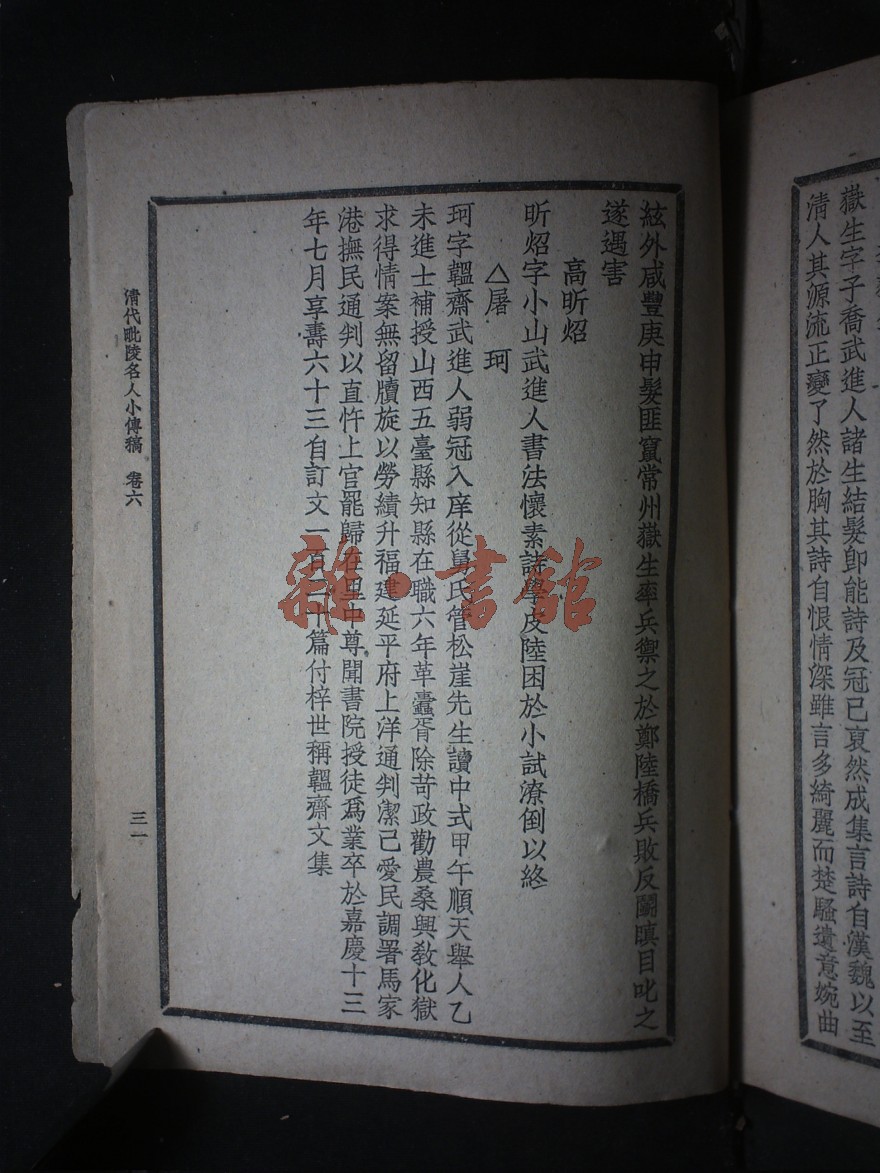 嶽生字子喬武進人諸生結髮卽能詩及冠已裒然成集言詩自漢魏以至
清人其源流正變了然於胸其詩自恨情深雖言多綺麗而楚騷遺意婉曲
絃外咸豐庚申髮匪竄常州嶽生率兵禦之於鄭陸橋兵敗反鬭瞋目叱之
遂遇害
高昕炤
昕炤字小山武進人書法懷素詩學皮陸困於小試潦倒以終
△屠 珂
珂字韞齋武進人弱冠入庠從舅氏管松崖先生讀中式甲午順天舉人乙
未進士補授山西五臺縣知縣在職六年革蠹胥除苛政勸農桑興敎化獄
求得情案無留牘旋以勞績升福建延平府上洋通判潔己愛民調署馬家
港撫民通判以直忤上官罷歸在里中尊聞書院授徒爲業卒於嘉慶十三
年七月享壽六十三自訂文一百二十篇付梓世稱韞齋文集
清代毗陵名人小傳稿 卷六
三一
雜·書館